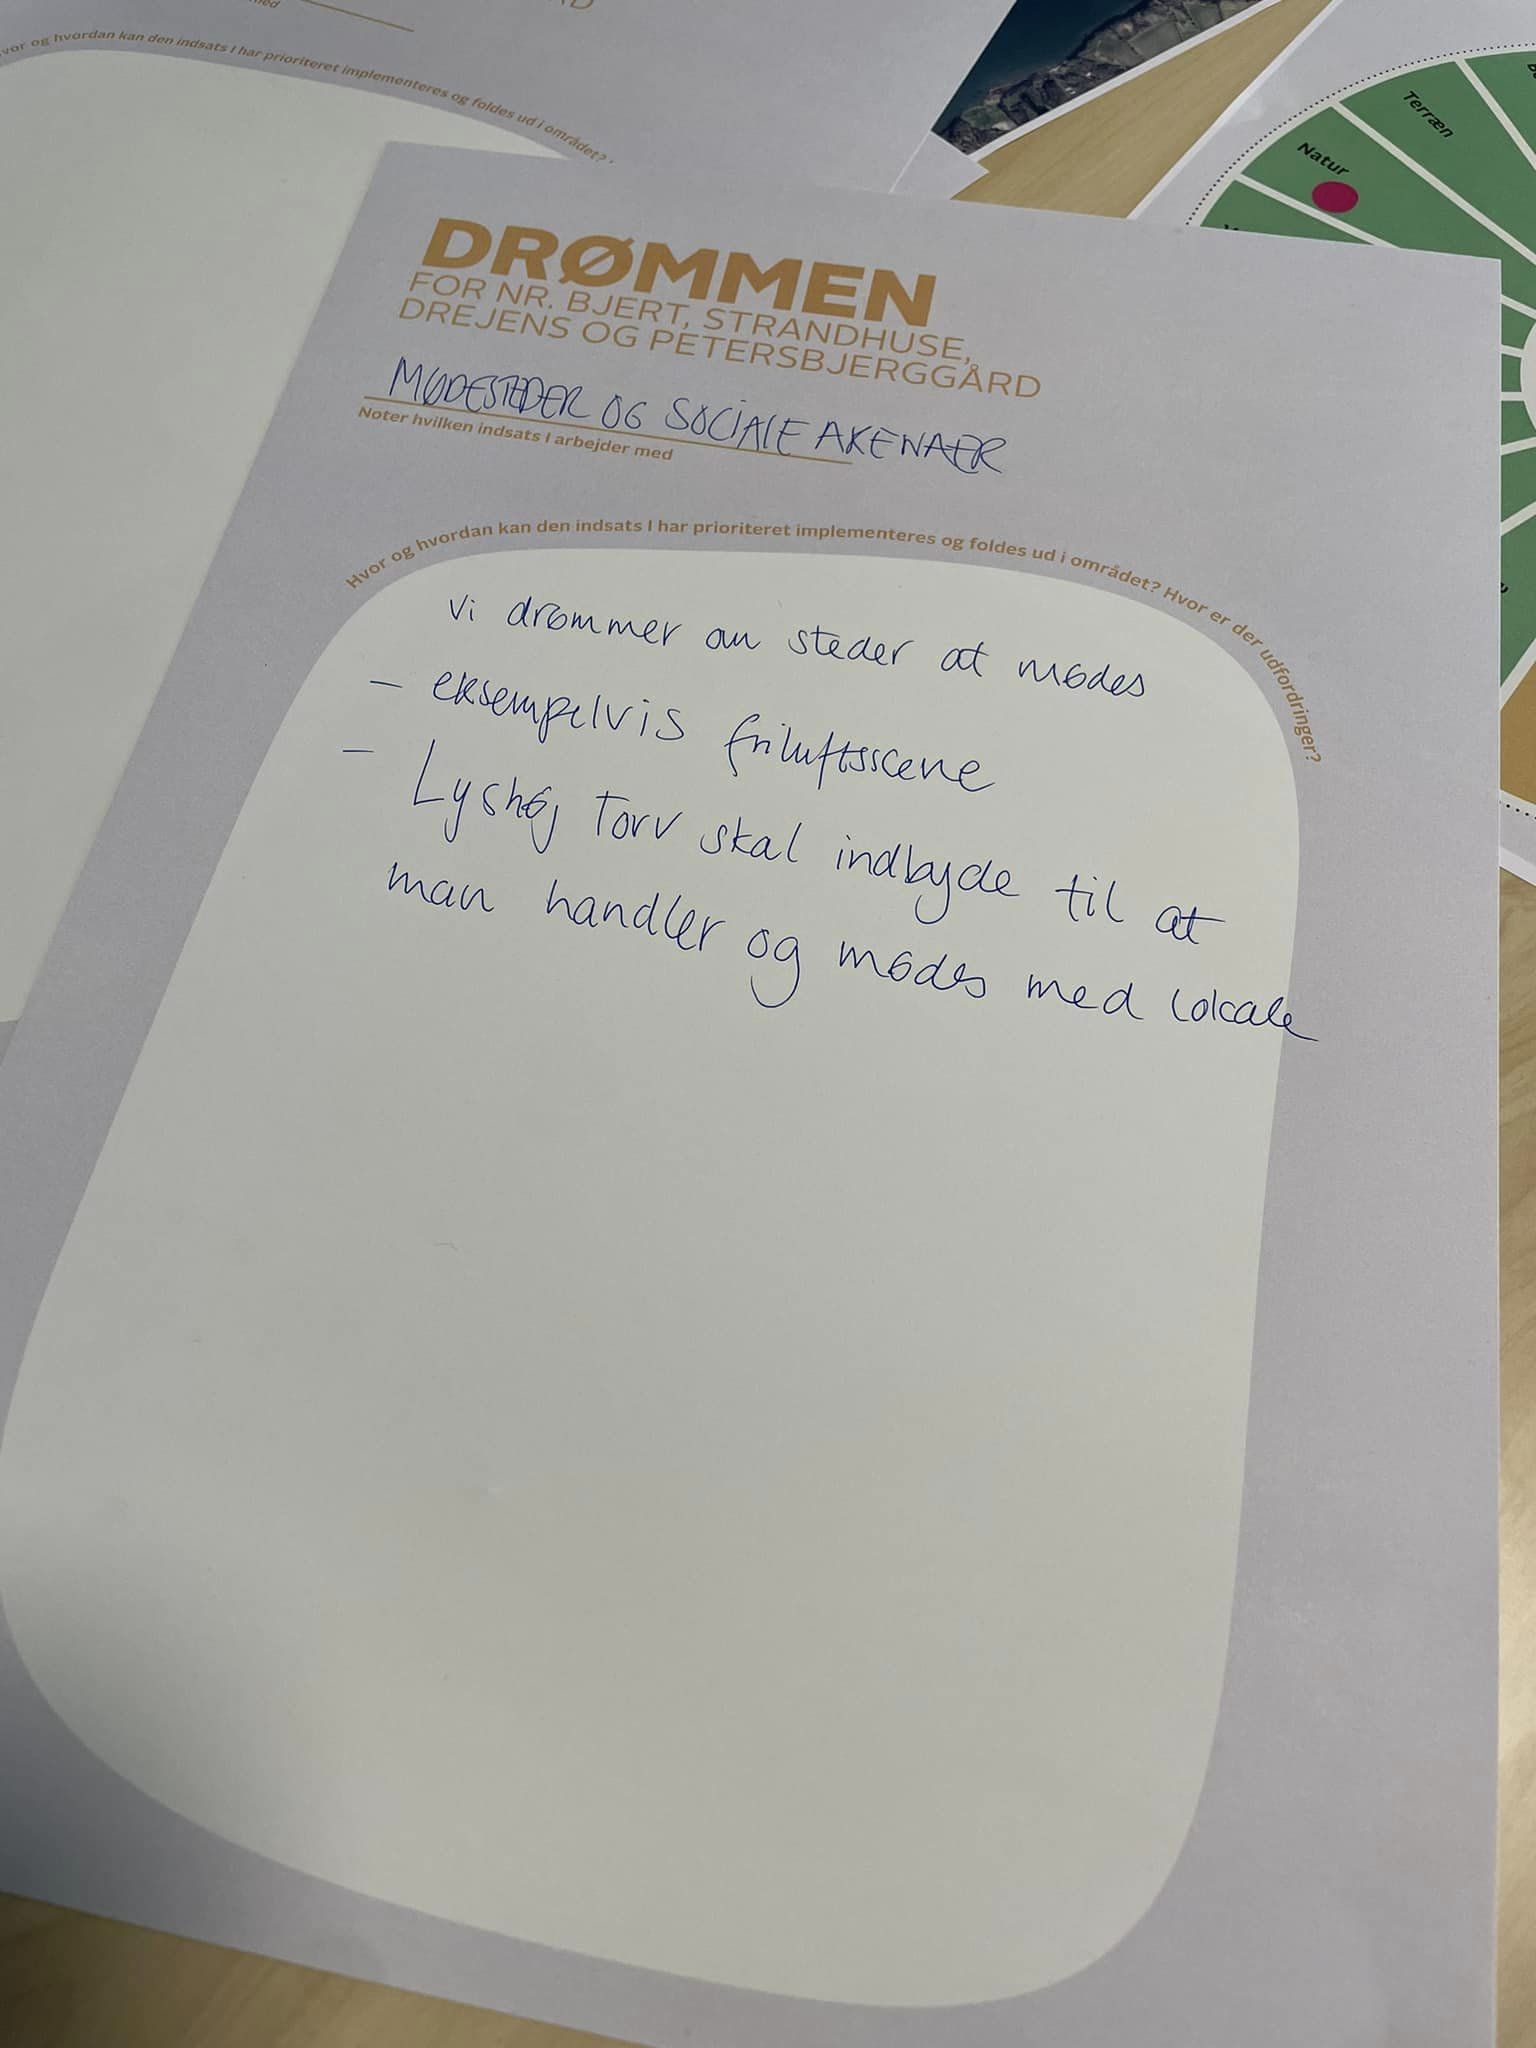 hvor og hvordan kan den indsats I har prioriteret implementeres og foldes ud i området?
Terræn
Natur
DRØMMEN
FOR NR. BJERT, STRANDHUSE,
DREJENS OG PETERSBJERGGÅRD
MØDESTEDER OG SOCIALE AKENAER
Noter hvilken indsats I arbejder med
Hvor og hvordan kan den indsats I har prioriteret implementeres og foldes ud i området? Hvor er der udfordringer?
Vi drømmer om steder at mødes
– eksempelvis friluftsscene
– Lyshøj Torv skal indbyde til at
man handler og mødes med lokale